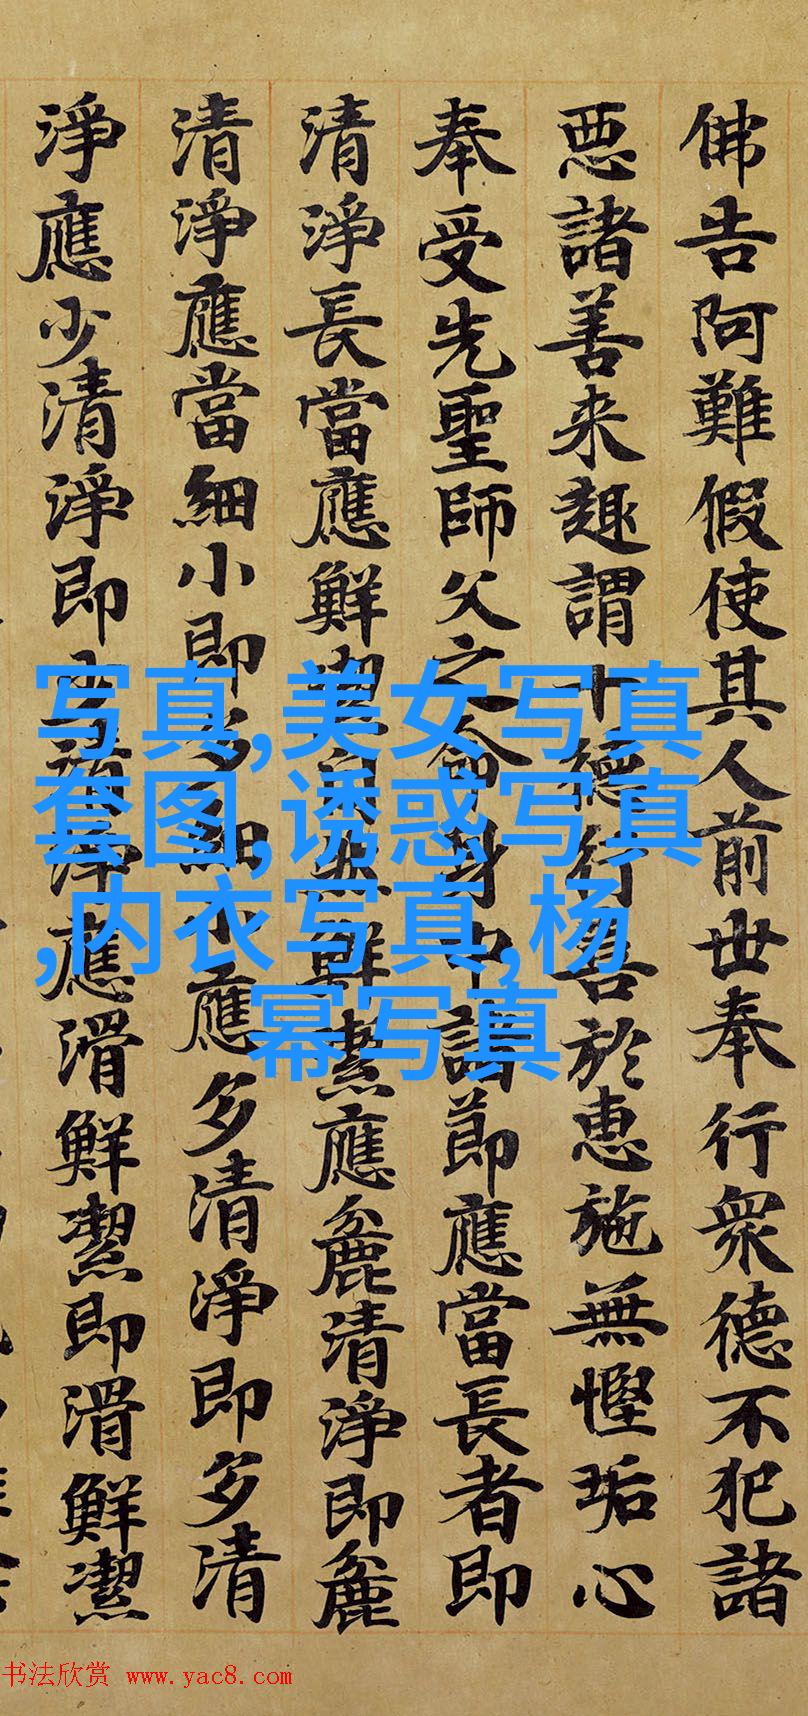 佛告阿難假使其人前世奉行眾德不犯諸
悪諸善来趣謂十德行善於恵施無慳垢心
奉受先聖師父之命身中諸節應當長者即
清淨長當應鮮潔自然鮮潔應麁清淨即麁
清淨應當細小即多細小應多清淨即多清
淨應少清淨即少清淨應滑鮮潔即滑鮮潔
写真,美女写真
套图,诱惑写真
,内衣写真,杨
幂写真
书法欣赏 www.yac8.com